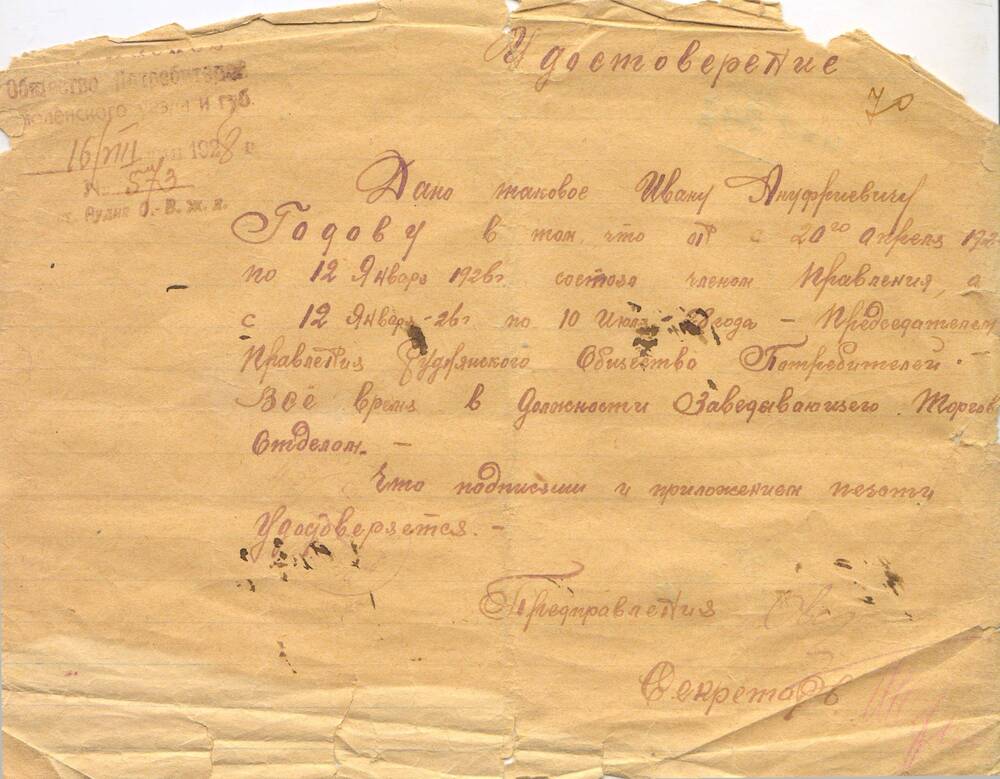 Общество Потребителей
Смоленского уезда и губ.
16/VIII 1928 г.
№ 573
ст. Рудня О.-В. ж. д.
Удостоверение
70
Дано таковое Ивану Ануфриевичу
Годову в том, что он с 20го апреля 192
по 12 Января 1926г состоял членом Правления, а
с 12 Января -26г по 10 Июля года – Председателем
Правления Руднянского Общества Потребителей.
Всё время в должности Заведывающего Торгов
Отделом. –
Что подписями и приложением печати
Удостоверяется. –
Предправления
Секретарь